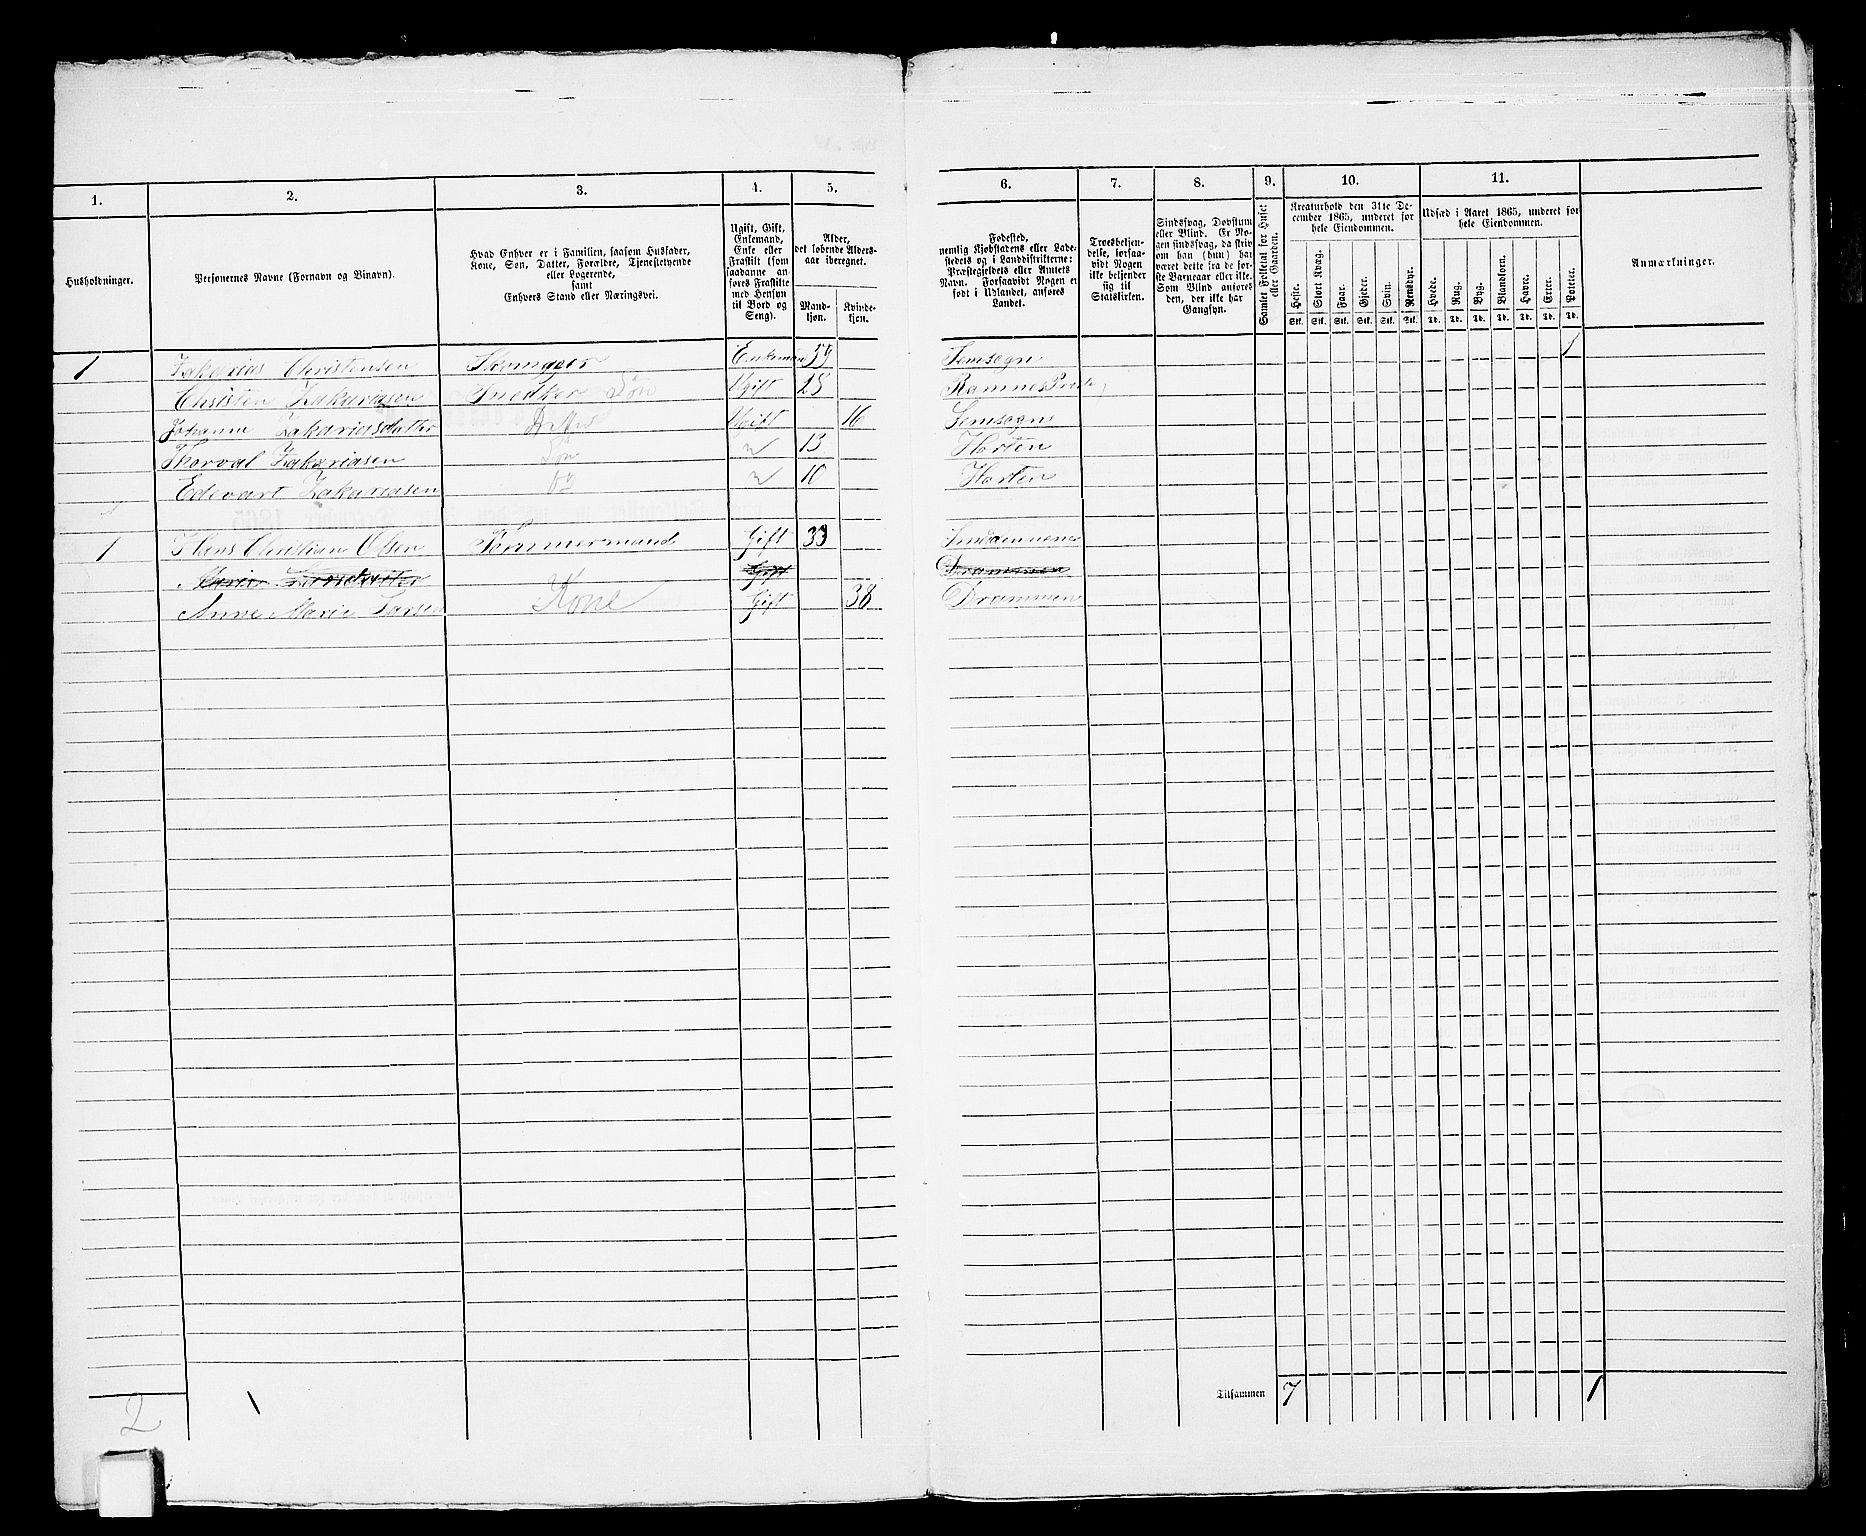 1. 2. 3. 4. 5. 6. 7. 8. 9. 10. 11.
Husholdninger.
Personernes Navne (Fornavn og Binavn).
Hvad Enhver er i Familien, saasom Husfader,
Kone, Søn, Datter, Forældre, Tjenestetyende
eller Logerende,
samt
Enhvers Stand eller Næringsvei.
Ugift, Gift,
Enkemand,
Enke eller
Fraskilt (som
saadanne an-
føres Fraskilte
med Hensyn
til Bord og
Seng).
Alder,
det løbende Alders-
aar iberegnet.
Mand-
kjøn.
Kvinde-
kjøn.
Fødested,
nemlig Kjøbstadens eller Lade-
stedets og i Landdistrikterne:
Præstegjeldets eller Amtets
Navn. Forsaavidt Nogen er
født i Udlandet, anføres
Landet.
Troesbekjen-
delse, forsaa-
vidt Nogen
ikke bekjender
sig til
Statskirken.
Sindssvag, Døvstum
eller Blind. Er No-
gen sindssvag, da skriv
om han (hun) har
været dette fra de før-
ste Barneaar eller ikke.
Som Blind anføres
den, der ikke har
Gangsyn.
Samlet Folketal for Huset
eller Gaarden.
Kreaturhold den 31te De-
cember 1865, underet for
hele Eiendommen.
Heste. Stort Kvæg. Faar. Gjeder. Svin. Rensdyr.
Stk. Stk. Stk. Stk. Stk. Stk.
Udsæd i Aaret 1865, underet for
hele Eiendommen.
Hvede. Rug. Byg. Blandkorn. Havre. Erter. Poteter.
Td. Td. Td. Td. Td. Td. Td.
Anmærkninger.
1 Zakarias Christensen Enkeman 59 Semsogn 1
Christen Zakariasen Snedker Søn Ugift 28 Ramnes
Johanne Zakariasdatter Datter Ugift 16 Semsogn
Thorval Zakariasen Søn 13 Horten
Edevart Zakariasen 10 Horten
1 Hans Christian Olsen Tømmermand Gift 33
Gift Drammen
Anne Marie Larsen Kone Gift 38 Drammen
Tilsammen 7 1
2